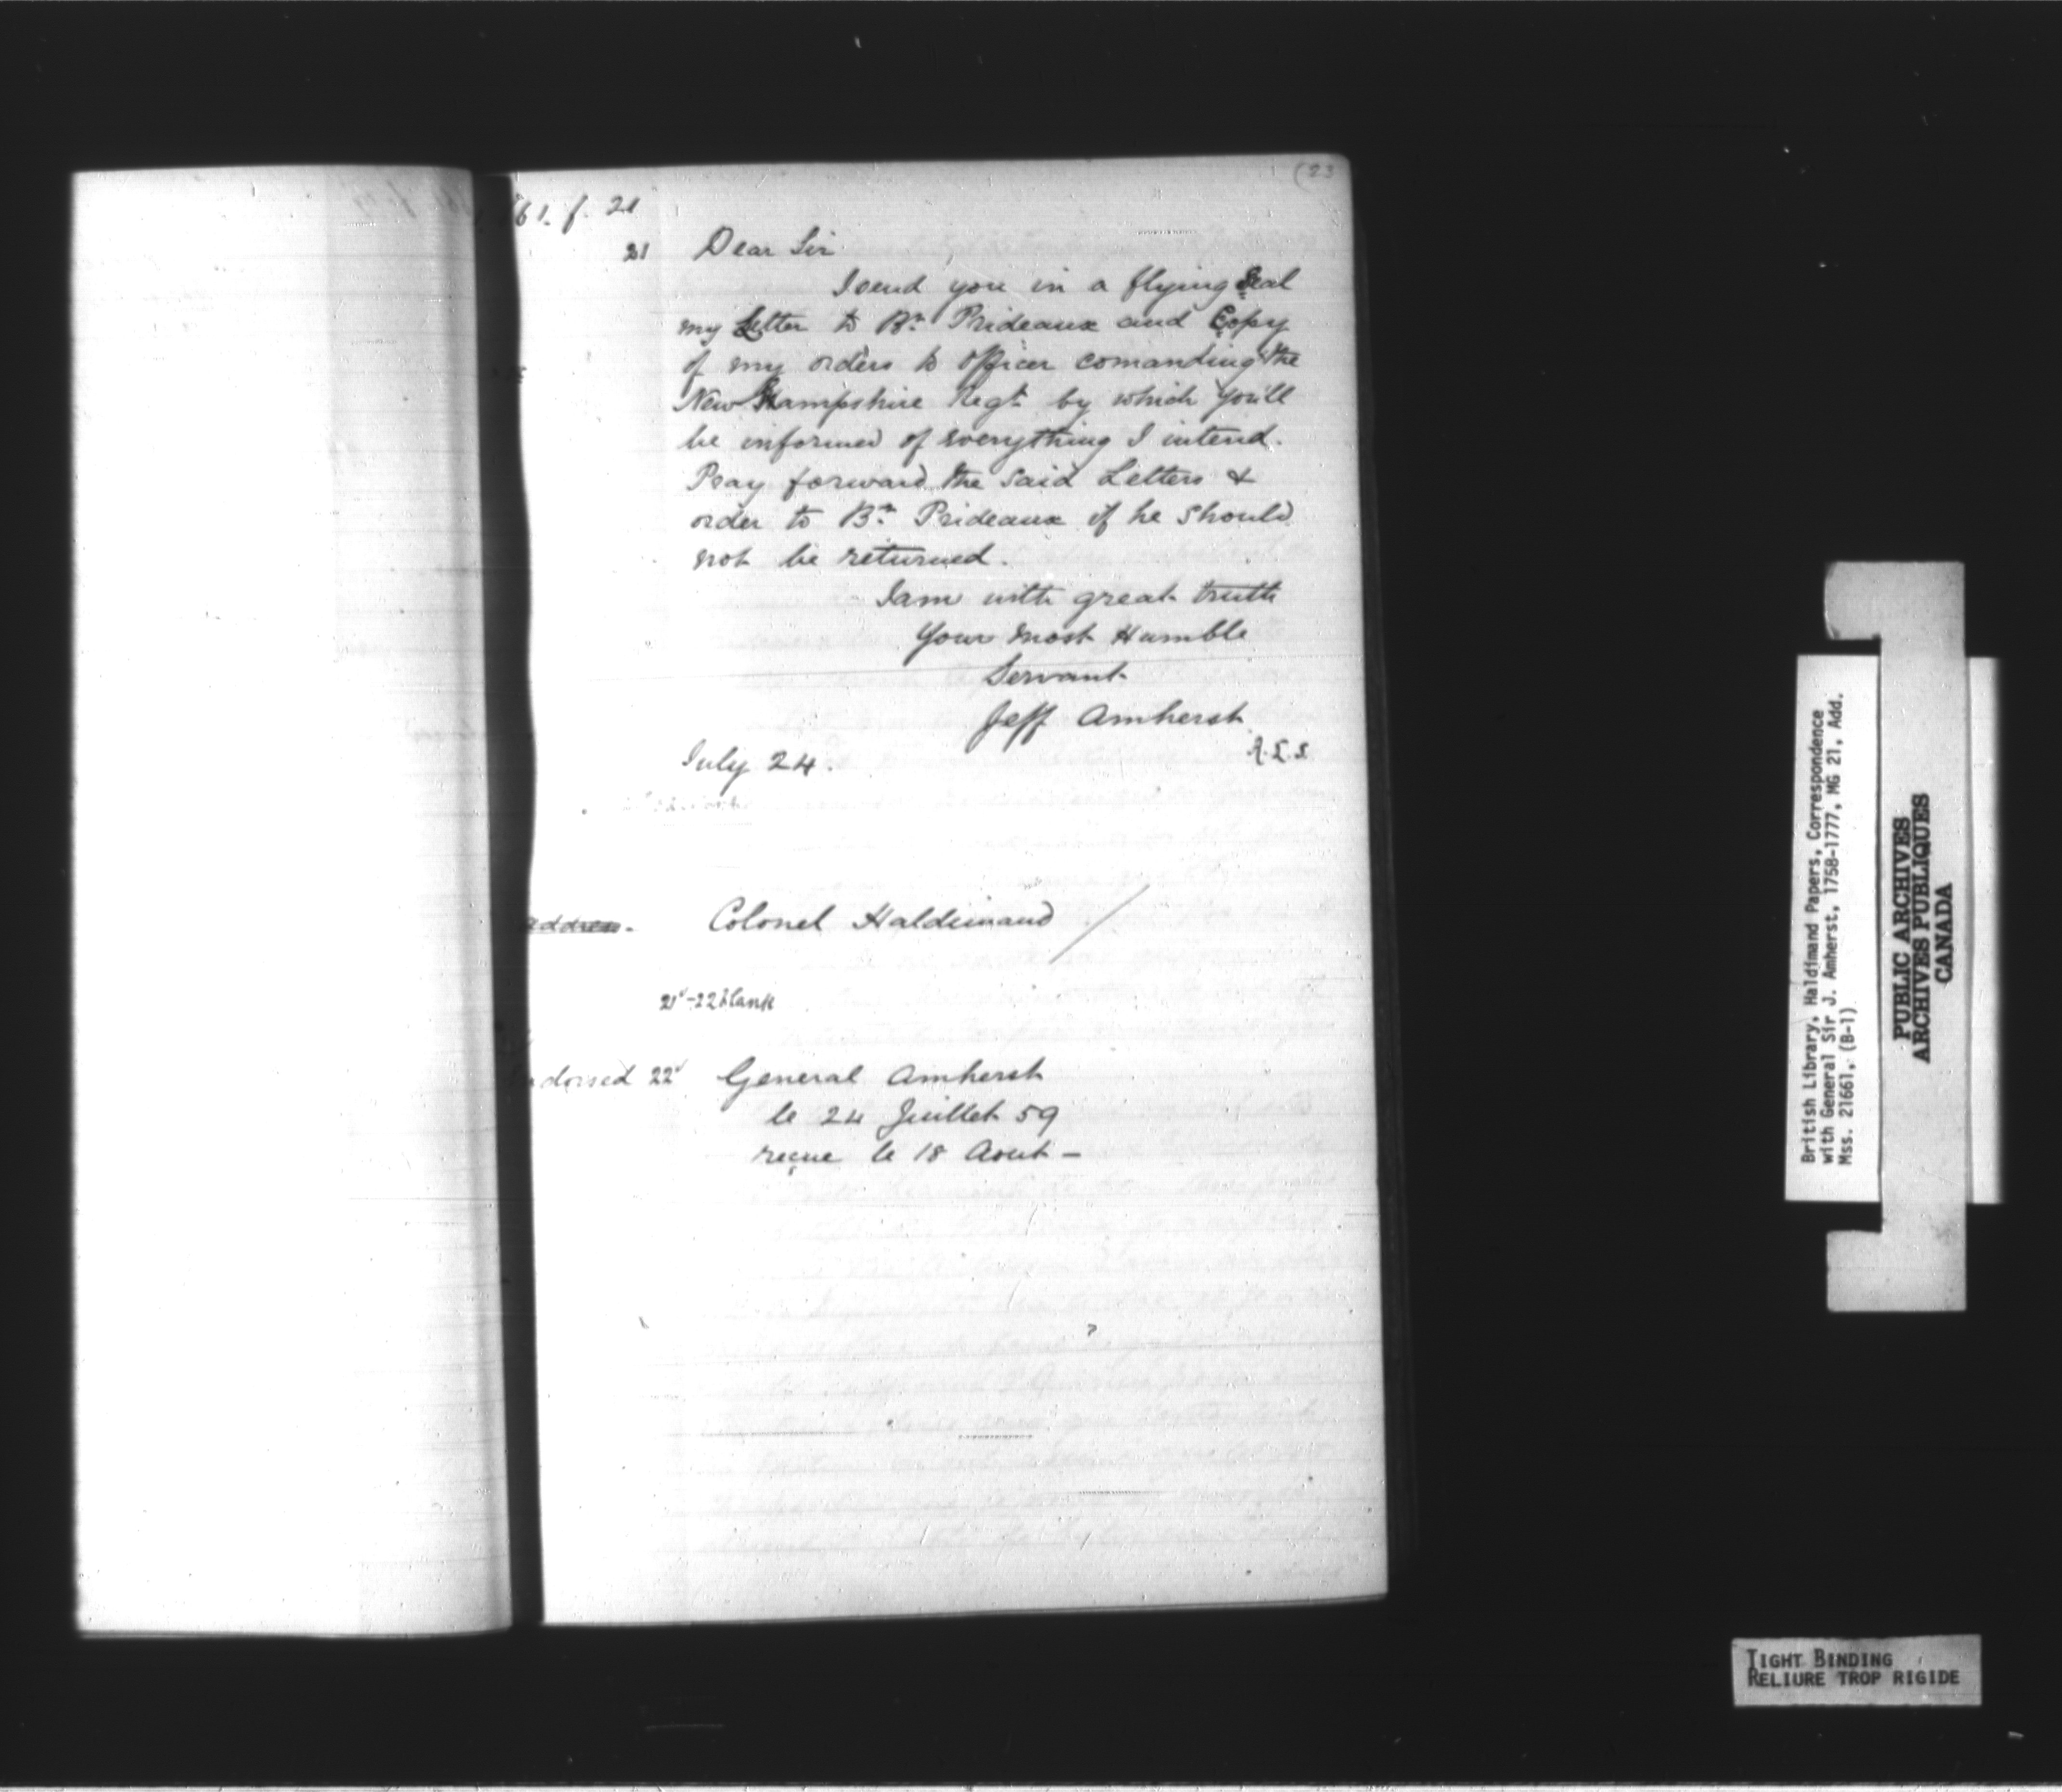 (23
61. f. 21
21 Dear Sir
I send you in a flying Seal
my Letter to Br. Prideaux and Copy
of my orders to Officer comanding the
New Hampshire Regt. by which you'll
be informed of everything I intend.
Pray forward the said Letters &
order to Br. Prideaux if he should
not be returned.
I am with great truth
Your most Humble
Servant
Jeff Amherst
A.L.S
July 24.
address. Colonel Haldimand
21v-22 blank
dorsed 22v General Amherst
le 24 Juillet 59
reçue le 18 Aout -
British Library, Haldimand Papers, Correspondence
with General Sir J. Amherst, 1758-1777, MG 21, Add.
Mss. 21661, (B-1)
PUBLIC ARCHIVES
ARCHIVES PUBLIQUES
CANADA
TIGHT BINDING
RELIURE TROP RIGIDE